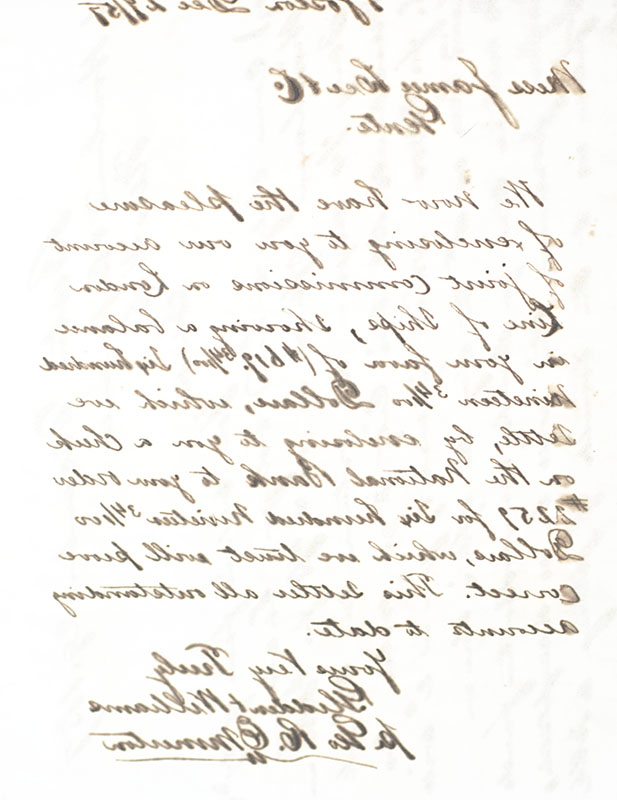 Boston Dec 29/57
Mess James Lee & Co
Gents.
We now have the pleasure
of enclosing to you our account
of joint Commissions on London
Line of Ships, showing a balance
in your favor of ($619. 34/100) Six hundred
nineteen 34/100 Dollars, which we
settle, by enclosing to you a check
on the National Bank to your order
for Six hundred Nineteen 34/100
Dollars, which we trust will prove
correct. This settles all outstanding
accounts to date.
Yours Very Truly
Glidden & Williams
pr Geo